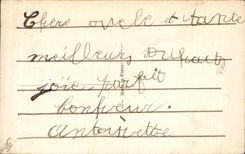 Chers oncle et tante
meilleurs souhaits
joie parfait
bonheur.
Antoinette